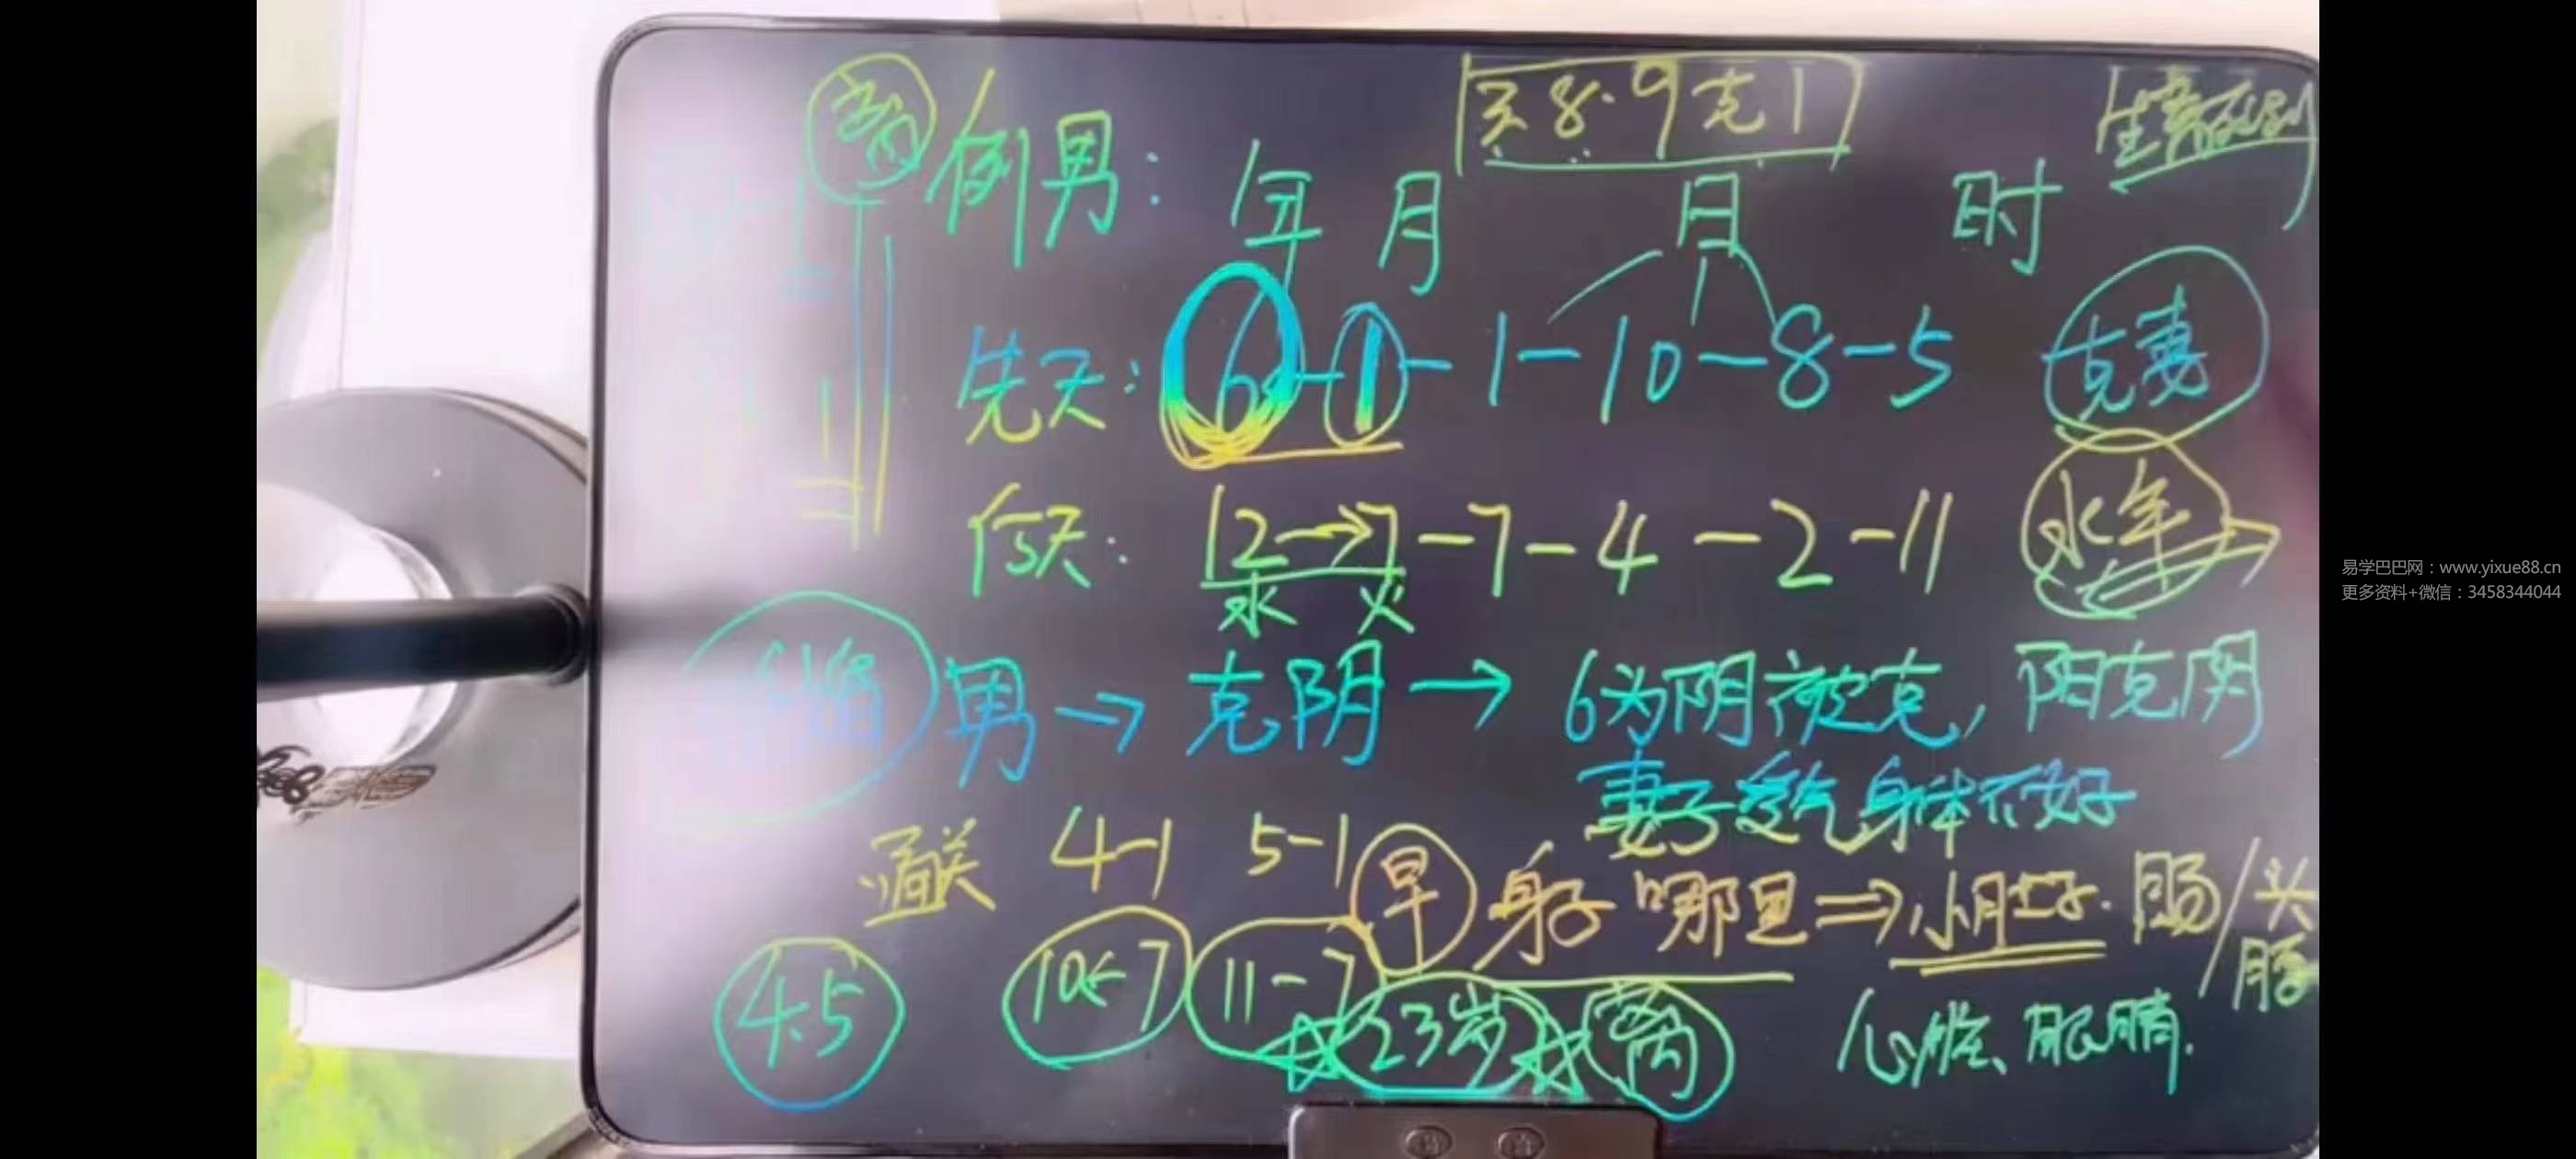 买8.9克1
例男: 年 月 日 时
先天: 6-1-1-10-8-5 克妻
后天: 12→7-7-4-2-11 水年
水 火
离婚 男→克阴→6为阴被克,阳克阴
妻子受气身体不好
通关 4-1 5-1 早 身子哪里⇒小肚子.肠/头
脖
4.5 10←7 11-7 23岁 离 心脏、眼睛.
易学巴巴网：www.yixue88.cn
更多资料+微信：3458344044